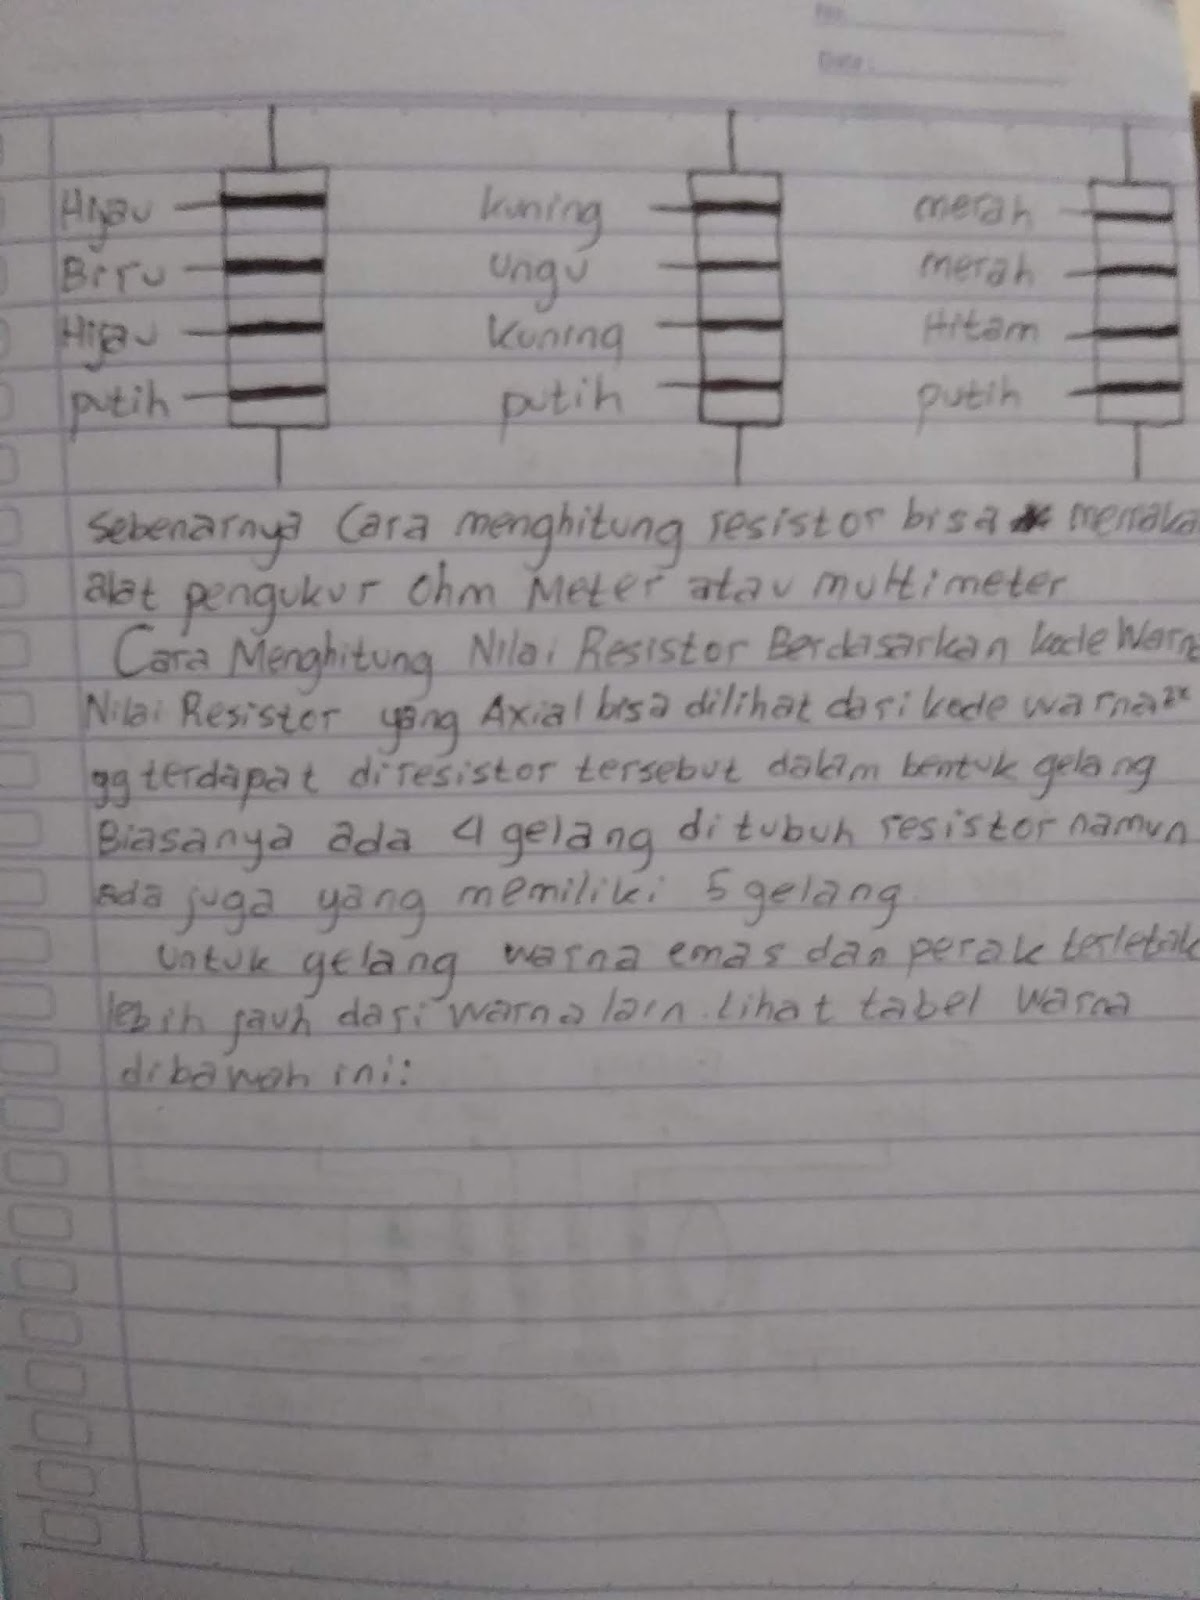 No
Date :
Hijau kuning merah
Biru ungu merah
Hijau kuning Hitam
putih putih putih
sebenarnya Cara menghitung resistor bisa memaka
alat pengukur Ohm Meter atau multimeter
Cara Menghitung Nilai Resistor Berdasarkan kode Warna
Nilai Resistor yang Axial bisa dilihat dari kode warna2x
yg terdapat diresistor tersebut dalam bentuk gelang
Biasanya ada 4 gelang di tubuh resistor namun
ada juga yang memiliki 5 gelang
untuk gelang warna emas dan perak terletak
lebih jauh dari warna lain. Lihat tabel warna
dibawah ini: